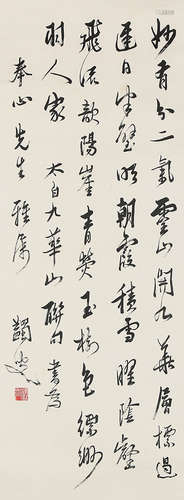 妙有分二氣靈山開九華層標遏
遲日半壁明朝霞積雪曜陰壑
飛流歕陽崖青熒玉樹色縹緲
羽人家 太白九華山聯句 書為
奉心先生雅屬
蠲叟